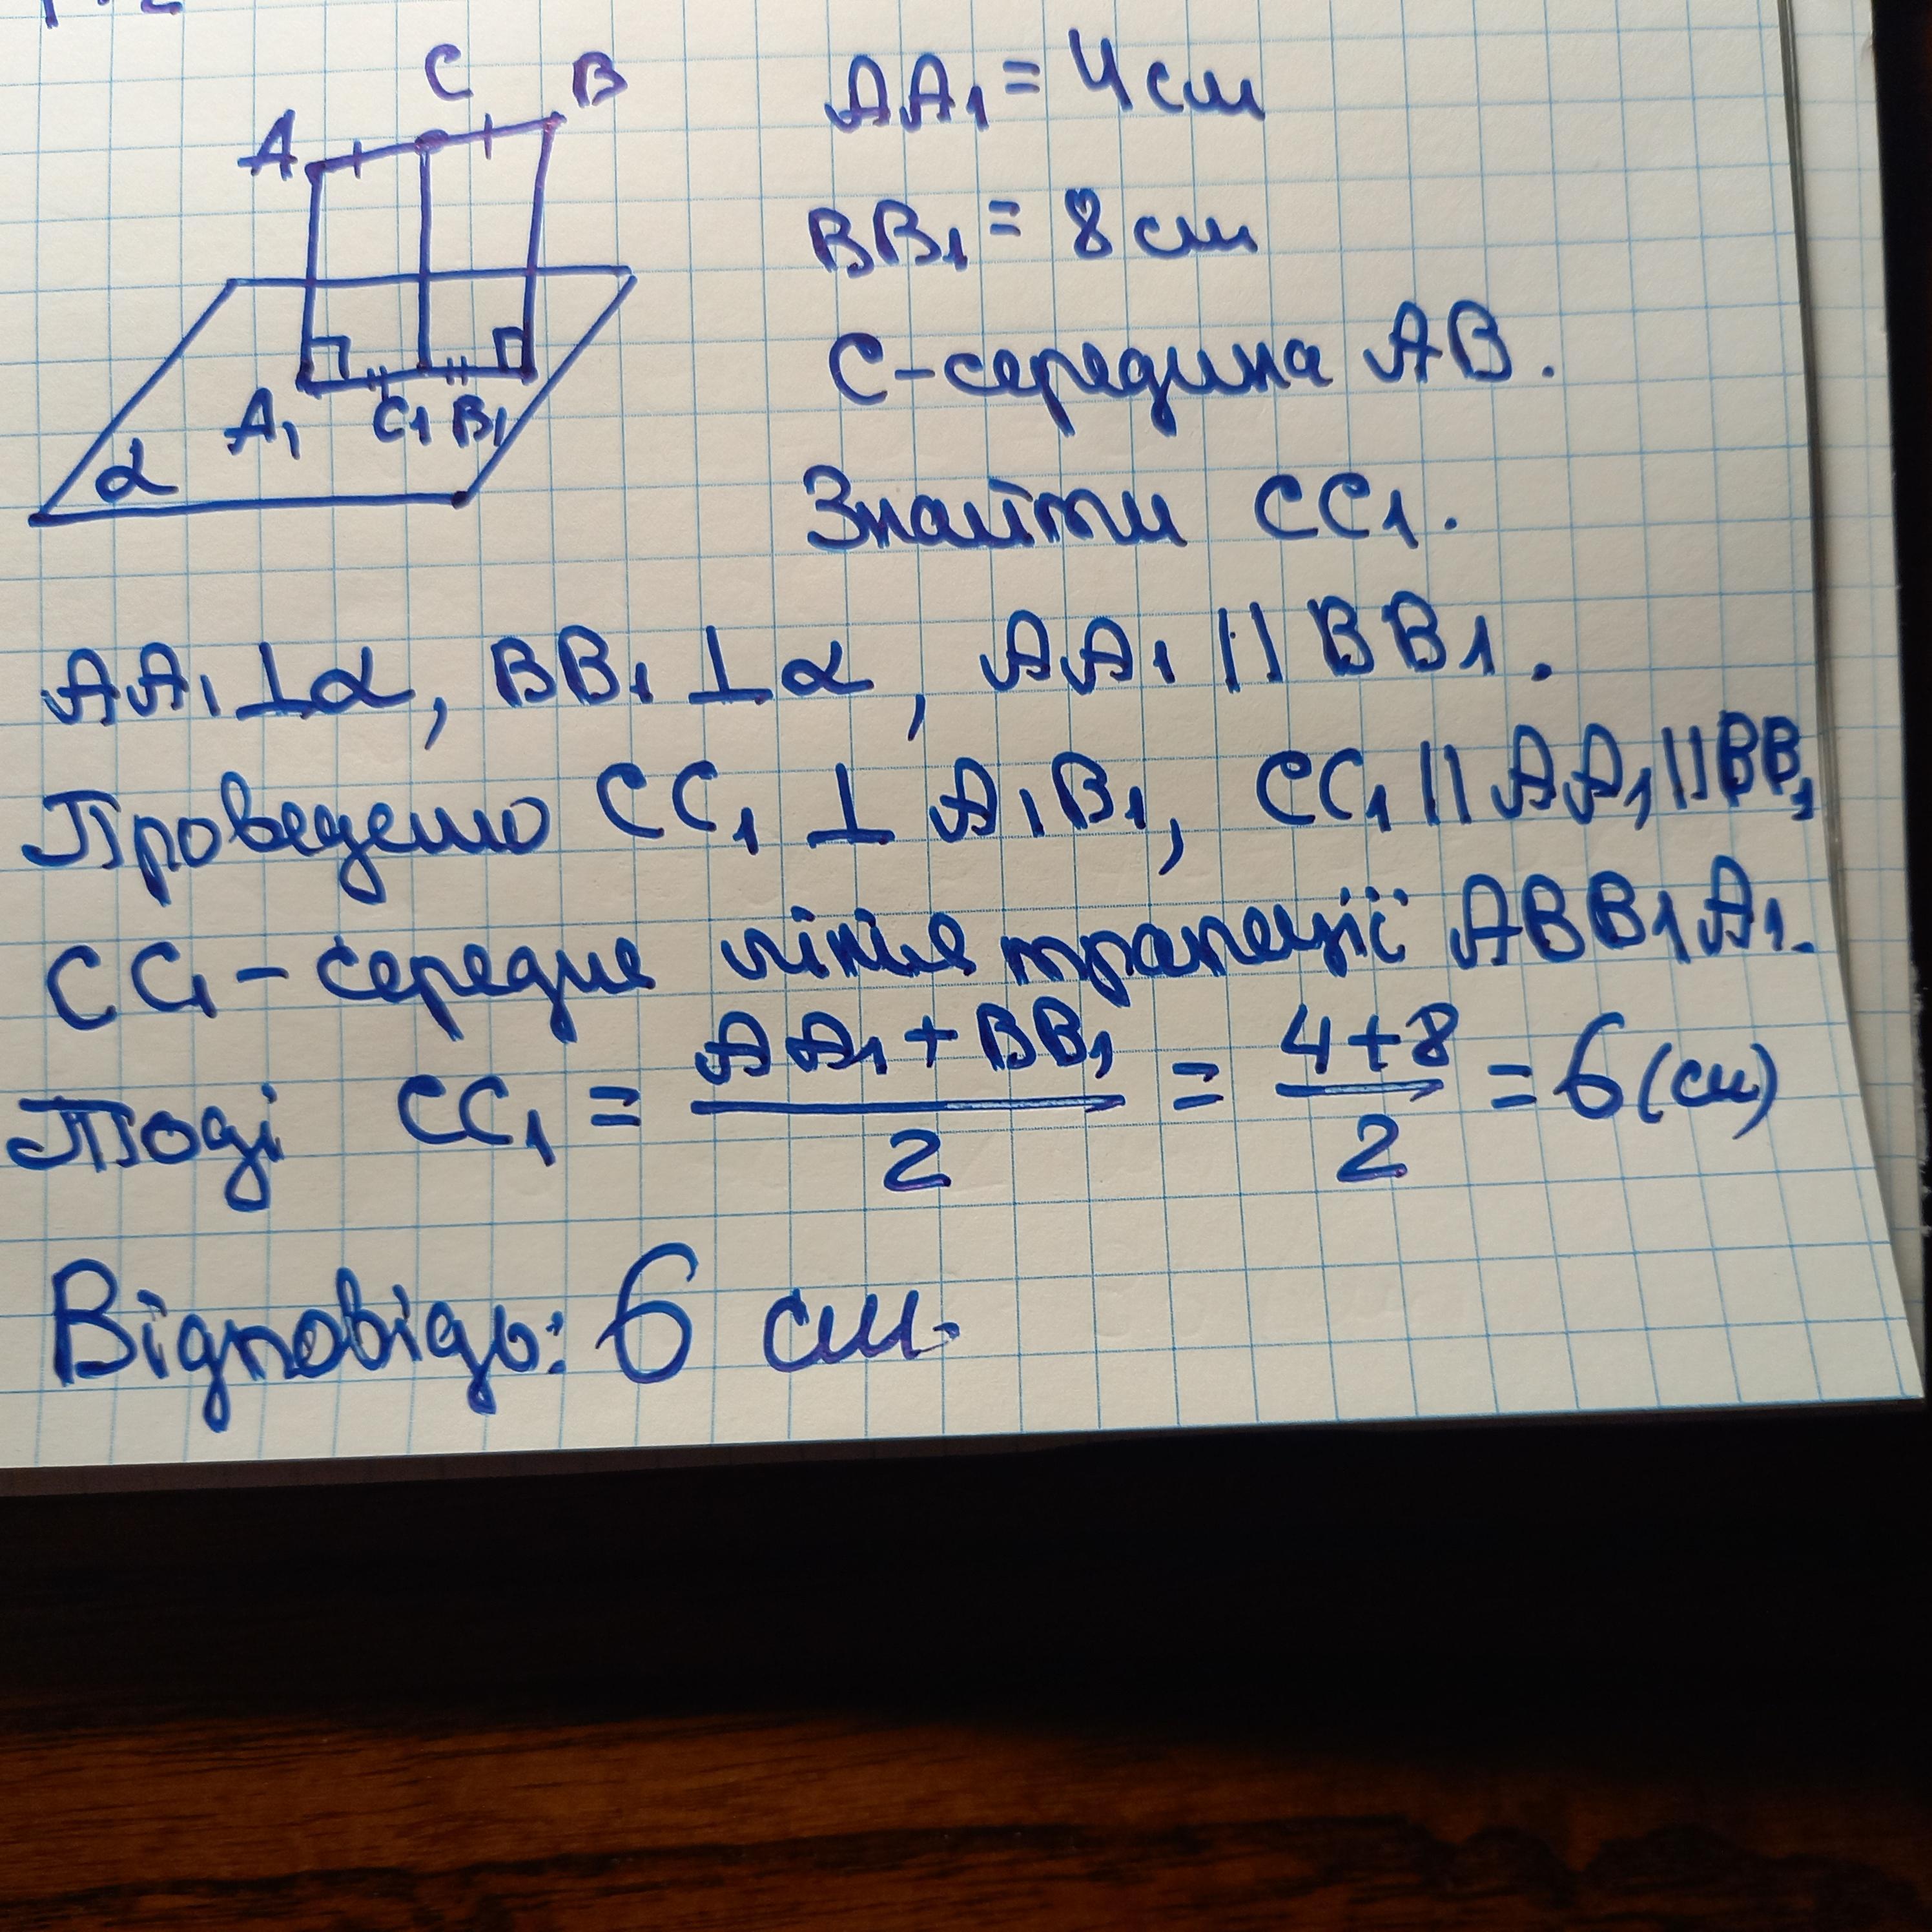 C
B
A
A₁
C₁
B₁
α
AA₁ = 4 см
BB₁ = 8 см
C-середина AB.
Знайти CC₁.
AA₁ ⊥ α, BB₁ ⊥ α, AA₁ || BB₁.
Проведемо CC₁ ⊥ A₁B₁, CC₁ || AA₁ || BB₁
CC₁ - середня лінія трапеції ABB₁A₁.
Тоді CC₁ = (AA₁ + BB₁)/2 = (4+8)/2 = 6 (см)
Відповідь: 6 см.